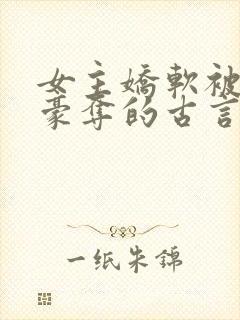 女主嬌軟被
豪奪的古言
一纸朱錦